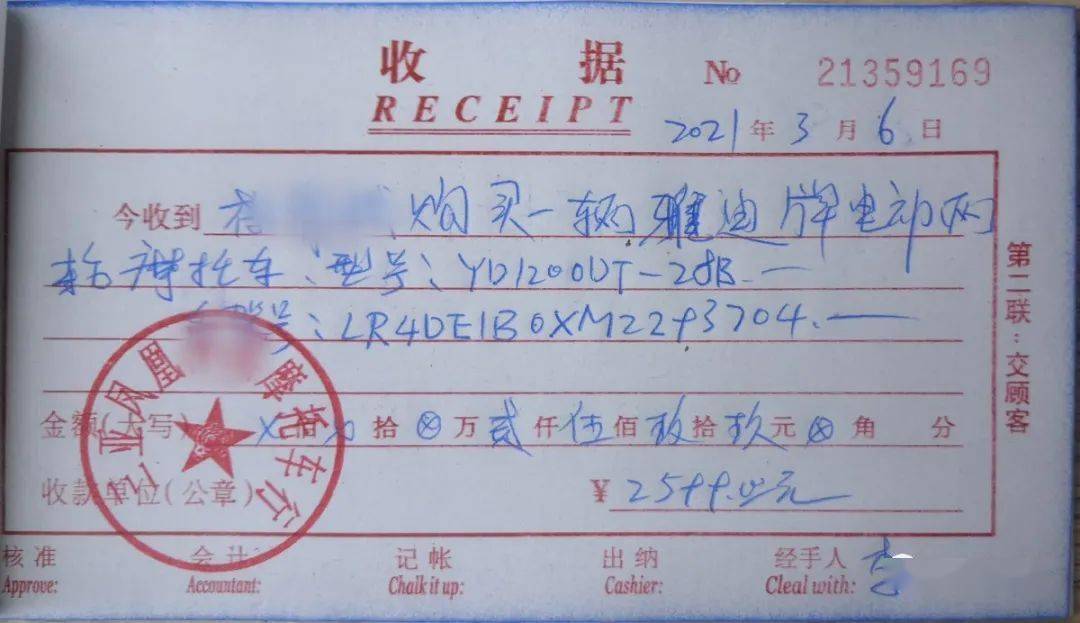 收据 № 21359169
RECEIPT
2021年3月6日
今收到 购买一辆雅迪牌电动两
轮摩托车;型号:YD1200DT-28B.
号:LR4DE1B0XM2293704.
金额(大写) 拾⊗万贰仟伍佰玖拾玖元⊗角 分
收款单位(公章) ¥2599.00元
摩托车行
第二联:交顾客
核准 会计 记帐 出纳 经手人
Approve: Accountant: Chalk it up: Cashier: Cleal with: